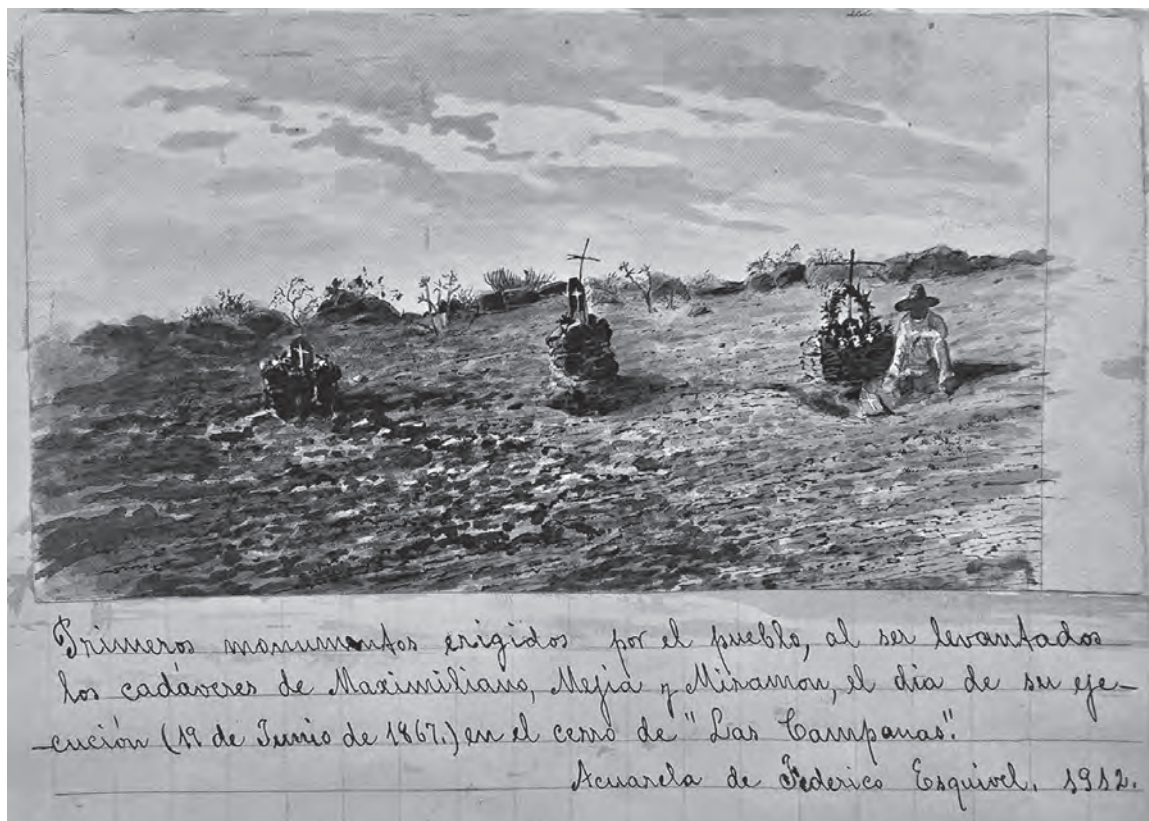 Primeros monumentos erigidos por el pueblo, al ser levantados
los cadáveres de Maximiliano, Mejía y Miramon, el dia de su eje-
-cución (19 de Junio de 1867.) en el cerro de "Las Campanas".
Acuarela de Federico Esquivel. 1912.